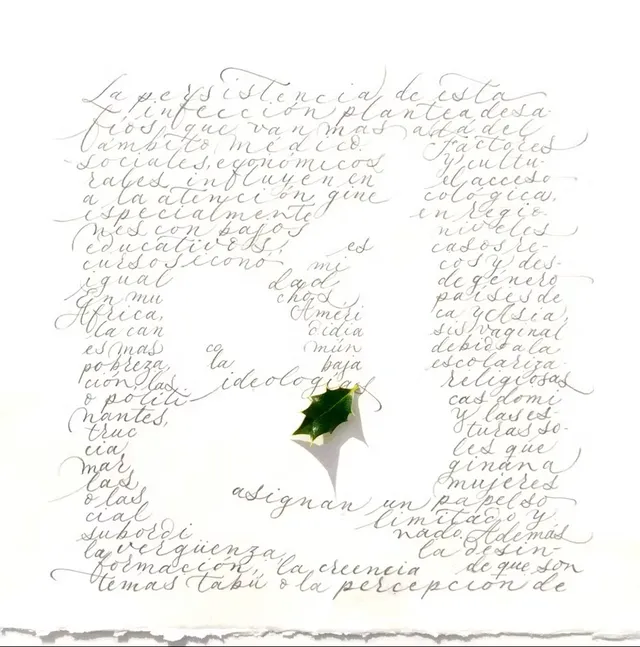 La persistencia de esta
infección plantea desa-
fíos que van más allá del
ámbito médico. Factores
sociales, económicos y cultu-
rales influyen en el acceso
a la atención gine cológica,
especialmente en regio-
nes con bajos niveles
educativos, es casos re-
cursos econó mi cos y des-
igual dad de género
En mu chos países de
África, Améri ca y Asia,
la can didia sis vaginal
es mas co mún debido a la
pobreza, la baja escolariza-
ción, las ideologías religiosas
o políti cas domi
nantes, y las es-
truc turas so-
cia les que
mar ginan a
las mujeres
o las asignan un papel so
cial limitado y
subordi nado. Además
la vergüenza, la desin-
formación, la creencia de que son
temas tabú o la percepción de